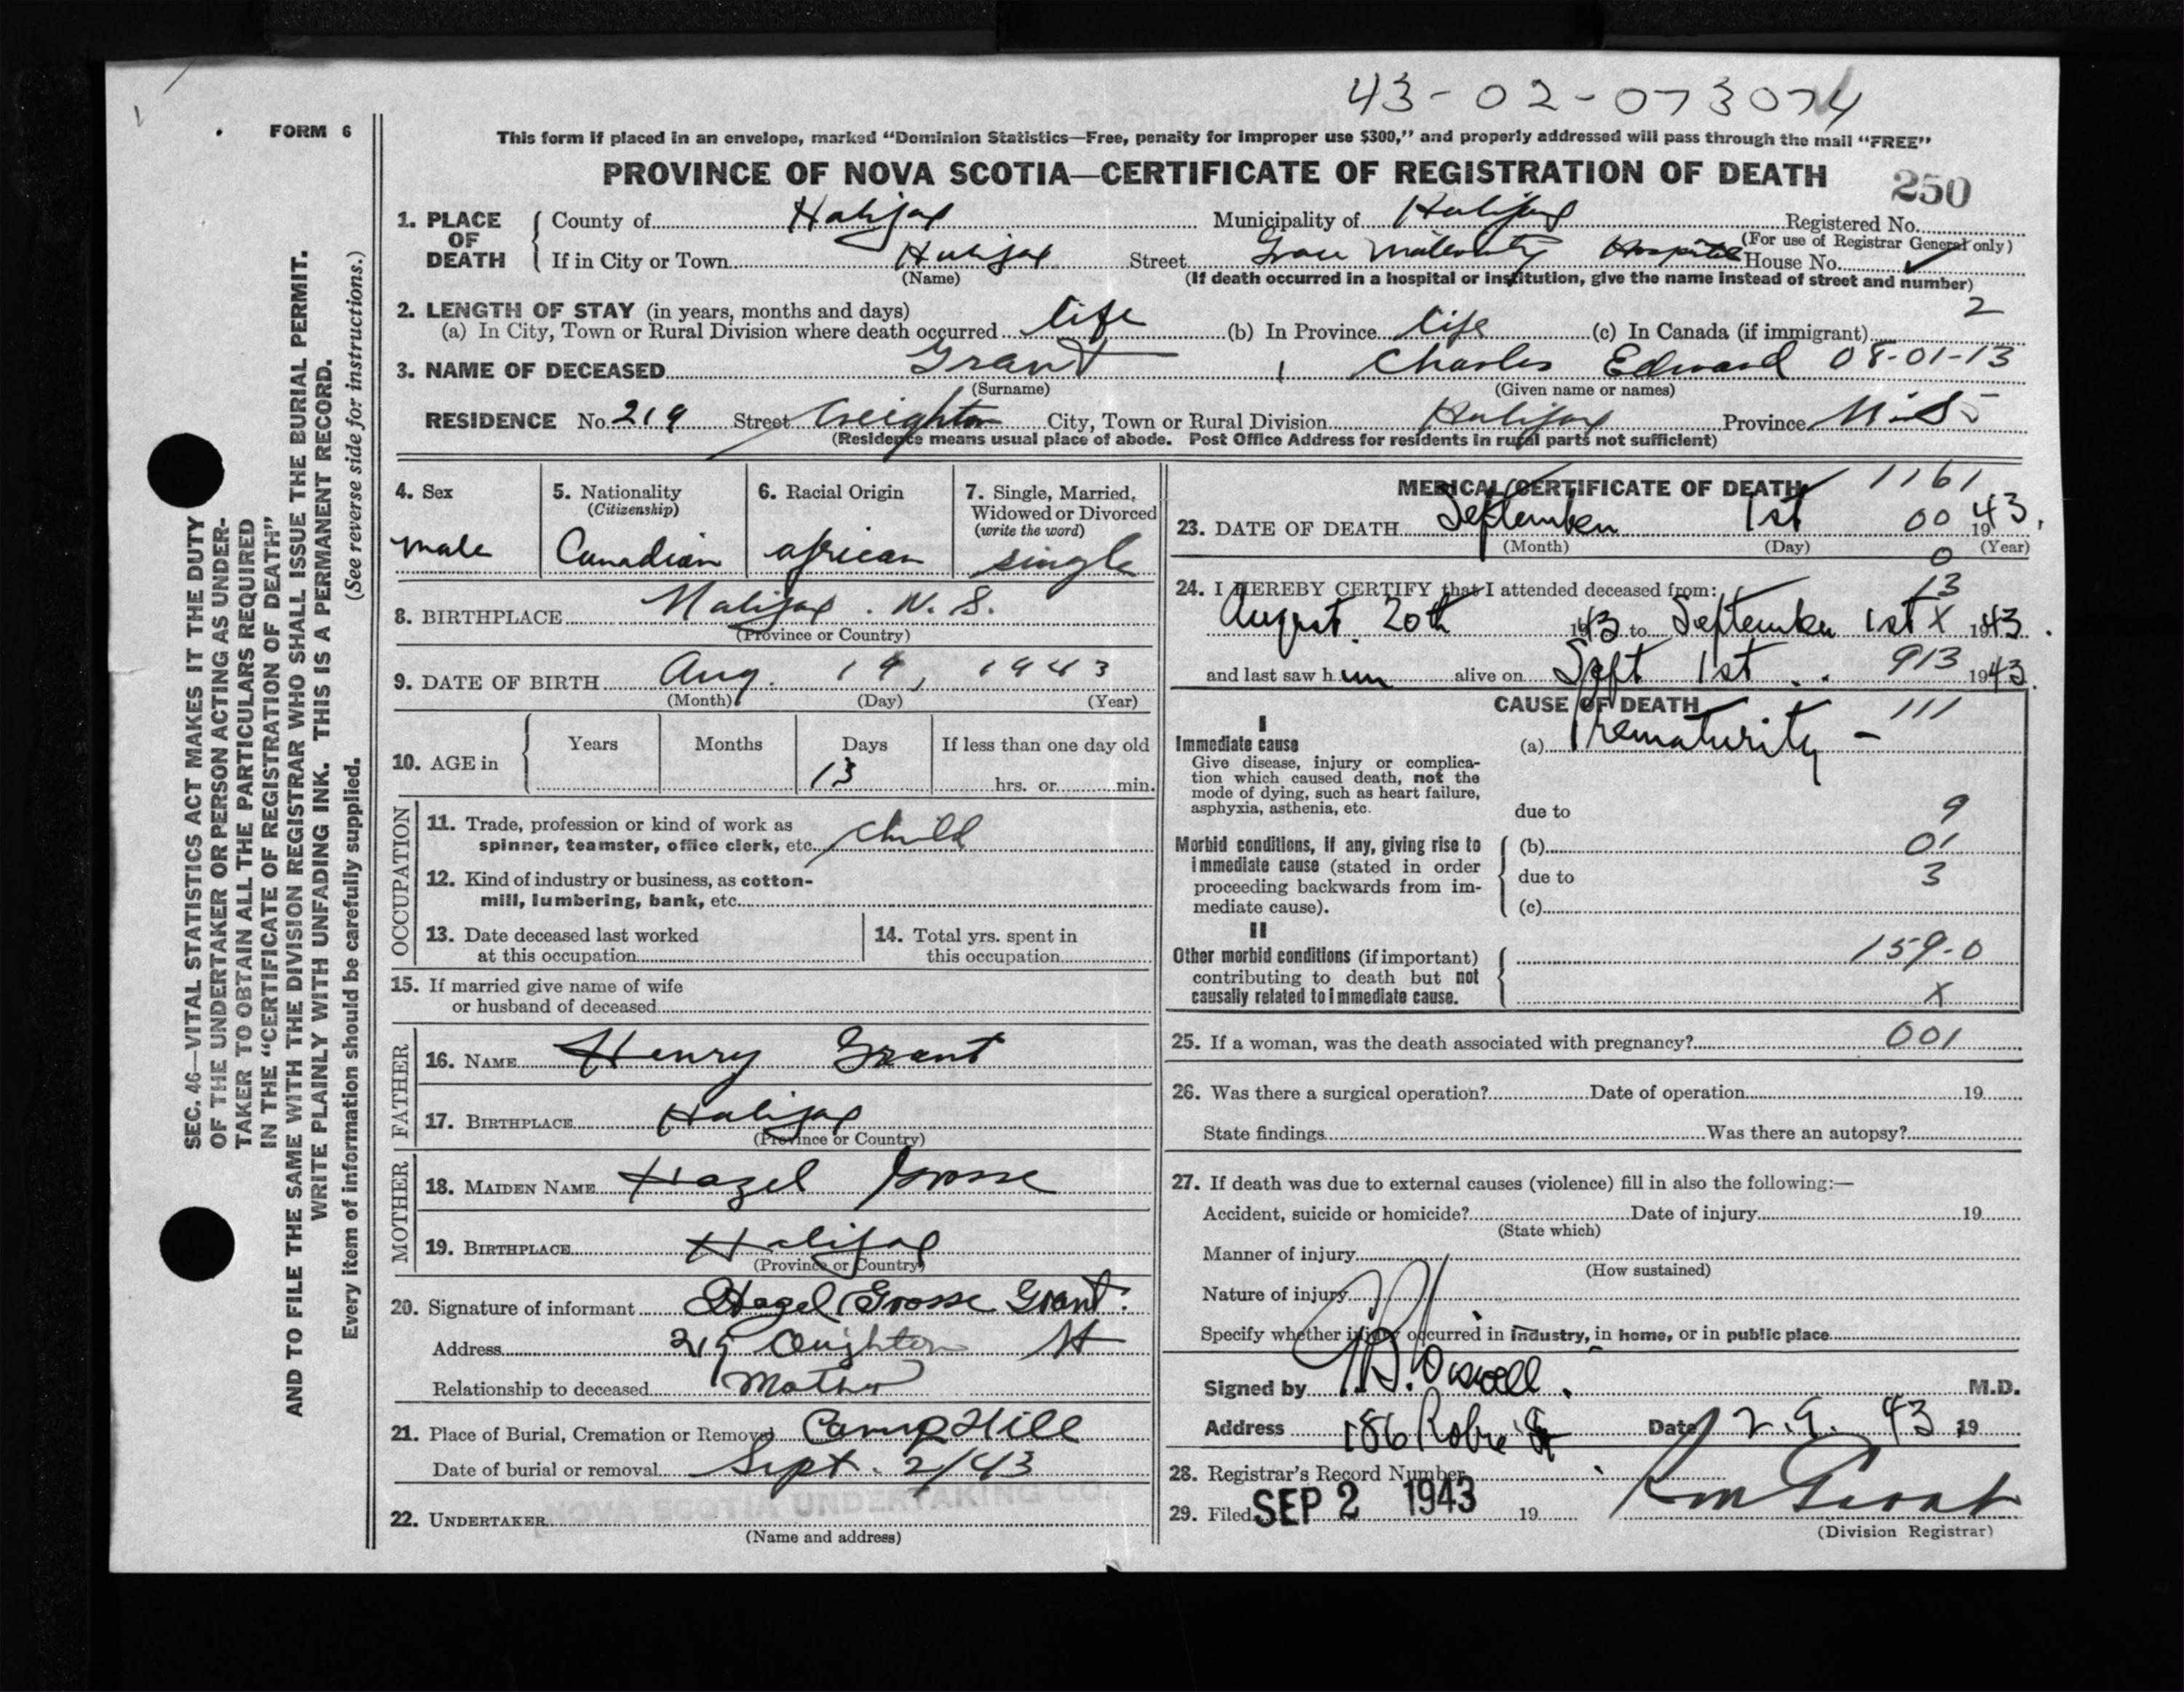 43-02-073074
FORM 6
This form if placed in an envelope, marked “Dominion Statistics—Free, penalty for improper use $300,” and properly addressed will pass through the mail “FREE”
PROVINCE OF NOVA SCOTIA—CERTIFICATE OF REGISTRATION OF DEATH
250
1. PLACE OF DEATH
County of Halifax Municipality of Halifax Registered No.
(For use of Registrar General only)
If in City or Town Halifax Street Grace Maternity Hospital House No.
(Name) (If death occurred in a hospital or institution, give the name instead of street and number)
2. LENGTH OF STAY (in years, months and days) 2
(a) In City, Town or Rural Division where death occurred life (b) In Province life (c) In Canada (if immigrant)
3. NAME OF DECEASED Grant, Charles Edward 08-01-13
(Surname) (Given name or names)
RESIDENCE No. 219 Street Creighton City, Town or Rural Division Halifax Province N.S.
(Residence means usual place of abode. Post Office Address for residents in rural parts not sufficient)
4. Sex
male
5. Nationality
(Citizenship)
Canadian
6. Racial Origin
african
7. Single, Married,
Widowed or Divorced
(write the word)
single
8. BIRTHPLACE Halifax. N. S.
(Province or Country)
9. DATE OF BIRTH Aug. 19, 1943
(Month) (Day) (Year)
10. AGE in
Years Months Days If less than one day old
13 hrs. or min.
OCCUPATION
11. Trade, profession or kind of work as
spinner, teamster, office clerk, etc. child
12. Kind of industry or business, as cotton-
mill, lumbering, bank, etc.
13. Date deceased last worked
at this occupation
14. Total yrs. spent in
this occupation
15. If married give name of wife
or husband of deceased
FATHER
16. NAME Henry Grant
17. BIRTHPLACE Halifax
(Province or Country)
MOTHER
18. MAIDEN NAME Hazel Grosse
19. BIRTHPLACE Halifax
(Province or Country)
20. Signature of informant Hazel Grosse Grant.
Address 219 Creighton St
Relationship to deceased Mother
21. Place of Burial, Cremation or Removal Camp Hill
Date of burial or removal Sept. 2/43
NOVA SCOTIA UNDERTAKING CO.
22. UNDERTAKER
(Name and address)
MEDICAL CERTIFICATE OF DEATH 1161
23. DATE OF DEATH September 1st 00 1943.
(Month) (Day) (Year)
0
24. I HEREBY CERTIFY that I attended deceased from: 13
August 20th 1943 to September 1st X 1943.
and last saw him alive on Sept 1st 913 1943.
CAUSE OF DEATH 111
I
Immediate cause
Give disease, injury or complica-
tion which caused death, not the
mode of dying, such as heart failure,
asphyxia, asthenia, etc.
(a) Prematurity -
due to 9
Morbid conditions, if any, giving rise to
immediate cause (stated in order
proceeding backwards from im-
mediate cause).
(b) 01
due to 3
(c)
II
Other morbid conditions (if important)
contributing to death but not
causally related to immediate cause.
159-0
X
25. If a woman, was the death associated with pregnancy? 001
26. Was there a surgical operation? Date of operation 19
State findings Was there an autopsy?
27. If death was due to external causes (violence) fill in also the following:—
Accident, suicide or homicide? Date of injury 19
(State which)
Manner of injury
(How sustained)
Nature of injury
Specify whether injury occurred in industry, in home, or in public place
Signed by M.D.
Address 186 Robie St Date 2.9.43 19
28. Registrar's Record Number
29. Filed SEP 2 1943 19
(Division Registrar)
SEC. 46—VITAL STATISTICS ACT MAKES IT THE DUTY
OF THE UNDERTAKER OR PERSON ACTING AS UNDER-
TAKER TO OBTAIN ALL THE PARTICULARS REQUIRED
IN THE “CERTIFICATE OF REGISTRATION OF DEATH”
AND TO FILE THE SAME WITH THE DIVISION REGISTRAR WHO SHALL ISSUE THE BURIAL PERMIT.
WRITE PLAINLY WITH UNFADING INK. THIS IS A PERMANENT RECORD.
Every item of information should be carefully supplied. (See reverse side for instructions.)